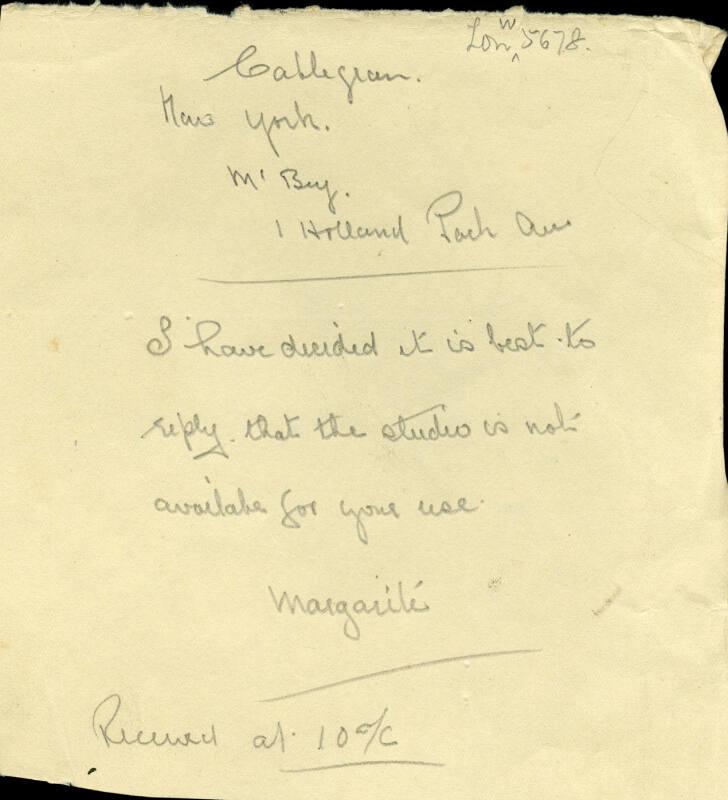 Lonw 5678.
Cablegram.
New York.
Mc Bey.
1 Holland Park Ave
I have decided it is best to
reply that the studio is not
availabe for your use.
Margarite
Received at 10 o/c